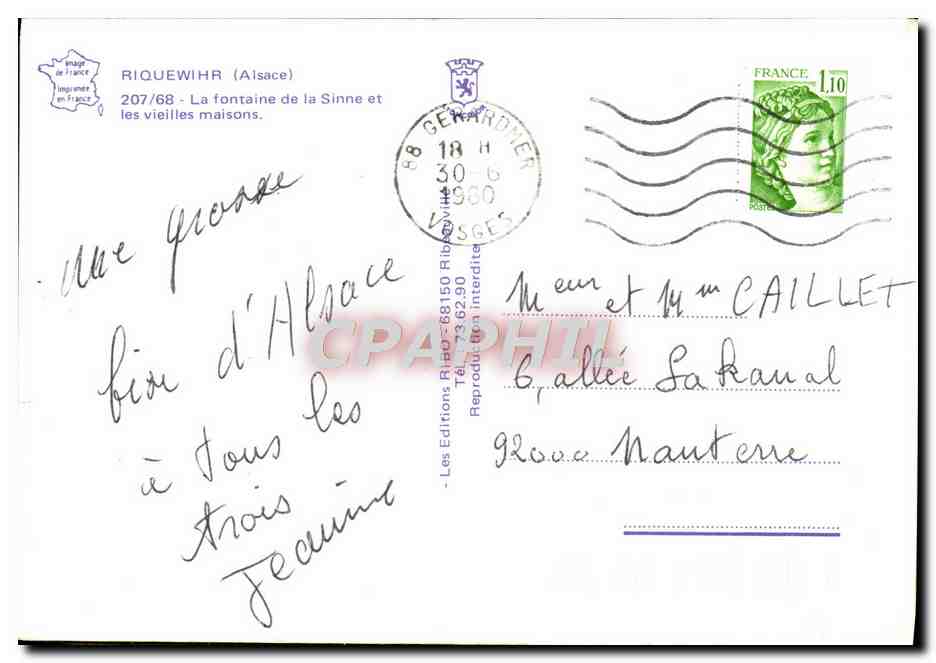 Image
de France
Imprimée
en France
RIQUEWIHR (Alsace)
207/68 - La fontaine de la Sinne et
les vieilles maisons.
88 GERARDMER
18 H
30-6
1980
VOSGES
FRANCE 1,10
POSTES
une grosse
bise d'Alsace
à tous les
trois
Jeanine
- Les Editions RIBO - 68150 Ribeauvillé
Tél. 73.62.90
Reproduction interdite
CPAPHIL
Meur et Mme CAILLET
6, allée Sakanal
92000 Nanterre